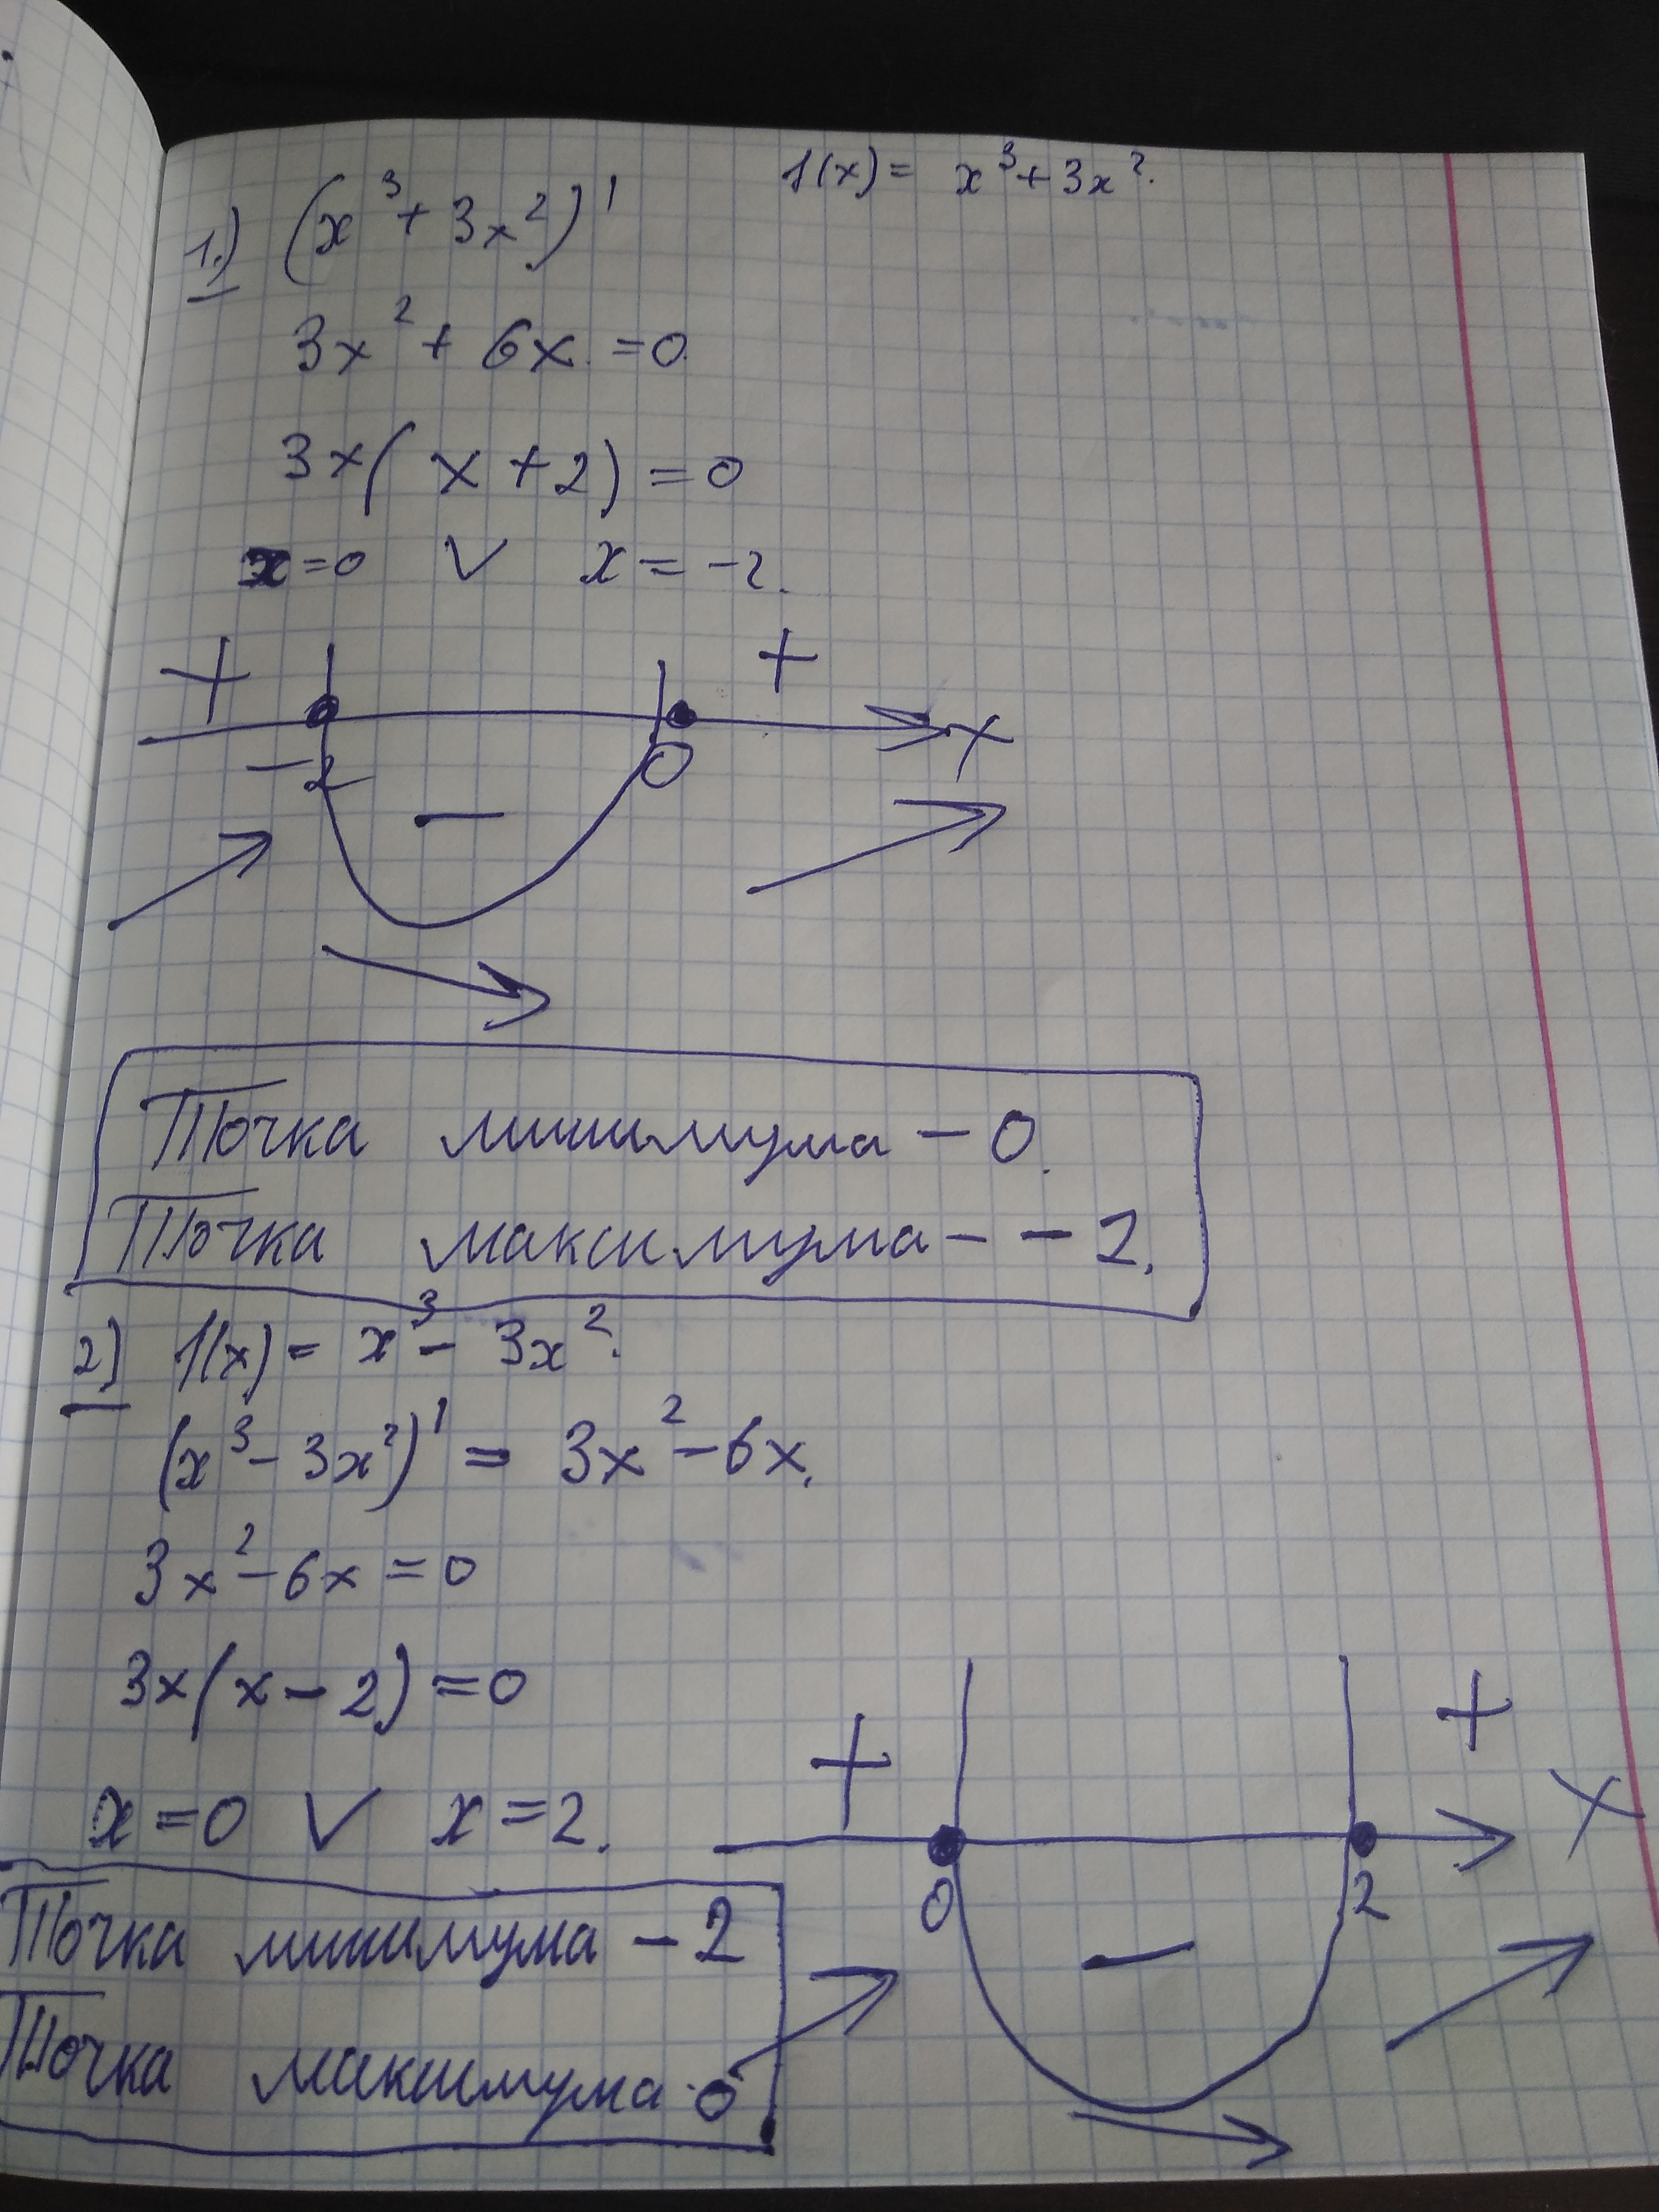 f(x) = x³ + 3x².
1.) (x³ + 3x²)'
3x² + 6x. = 0.
3x( x + 2) = 0
x = 0 ∨ x = -2.
+ +
-2 0 x
-
Точка минимума – 0.
Точка максимума – -2.
2) f(x) = x³ - 3x².
(x³ - 3x²)' = 3x² - 6x.
3x² - 6x = 0
3x(x - 2) = 0
x = 0 ∨ x = 2.
+ +
0 2 x
-
Точка минимума – 2
Точка максимума - 0